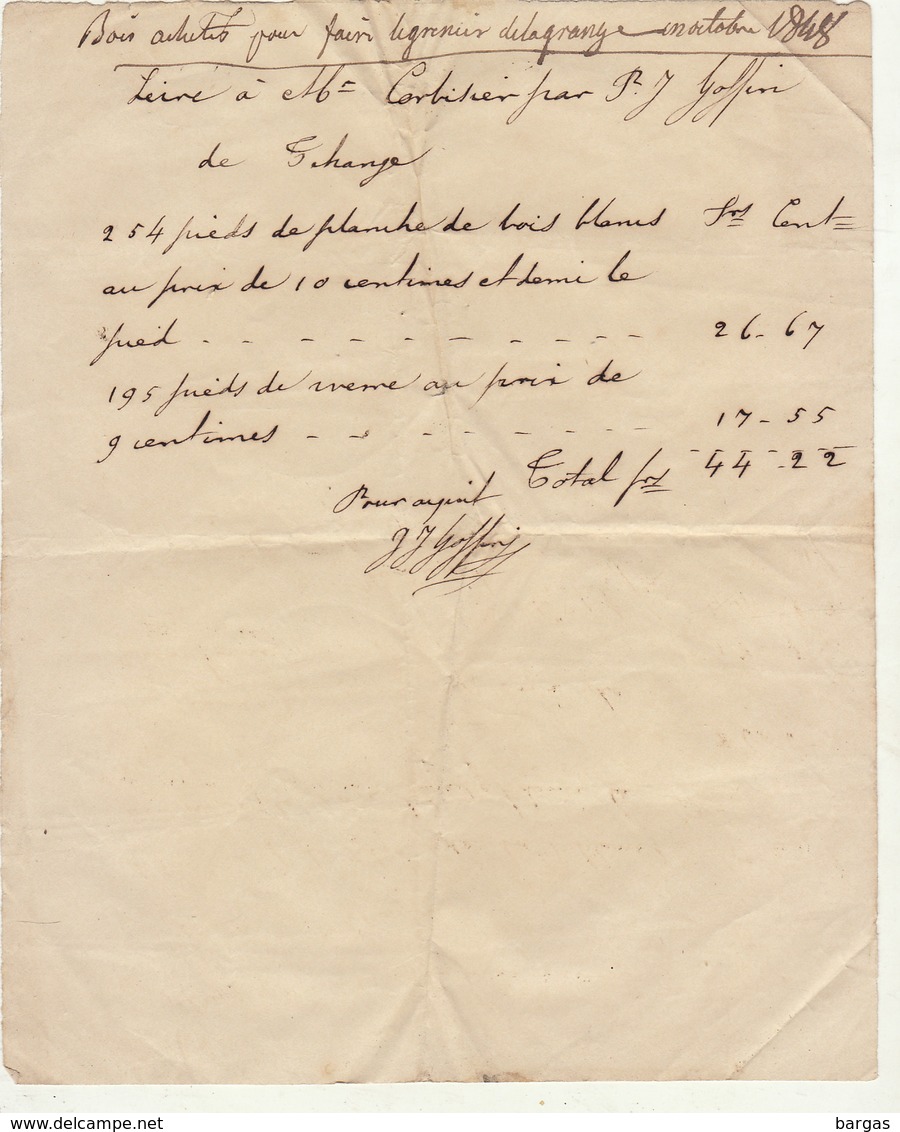 Bois achetés pour faire le grenier de la grange en octobre 1848
Livré à Mr Corbisier par P. J Goffin
de Tihange
254 pieds de planche de bois blancs frs Cent
au prix de 10 centimes et demi le
pied - - - - - - - - - - 26-67
195 pieds de werre au prix de
9 centimes - - - - - - - - 17-55
Total frs 44-22
Pour aquit
P J Goffin
bargas